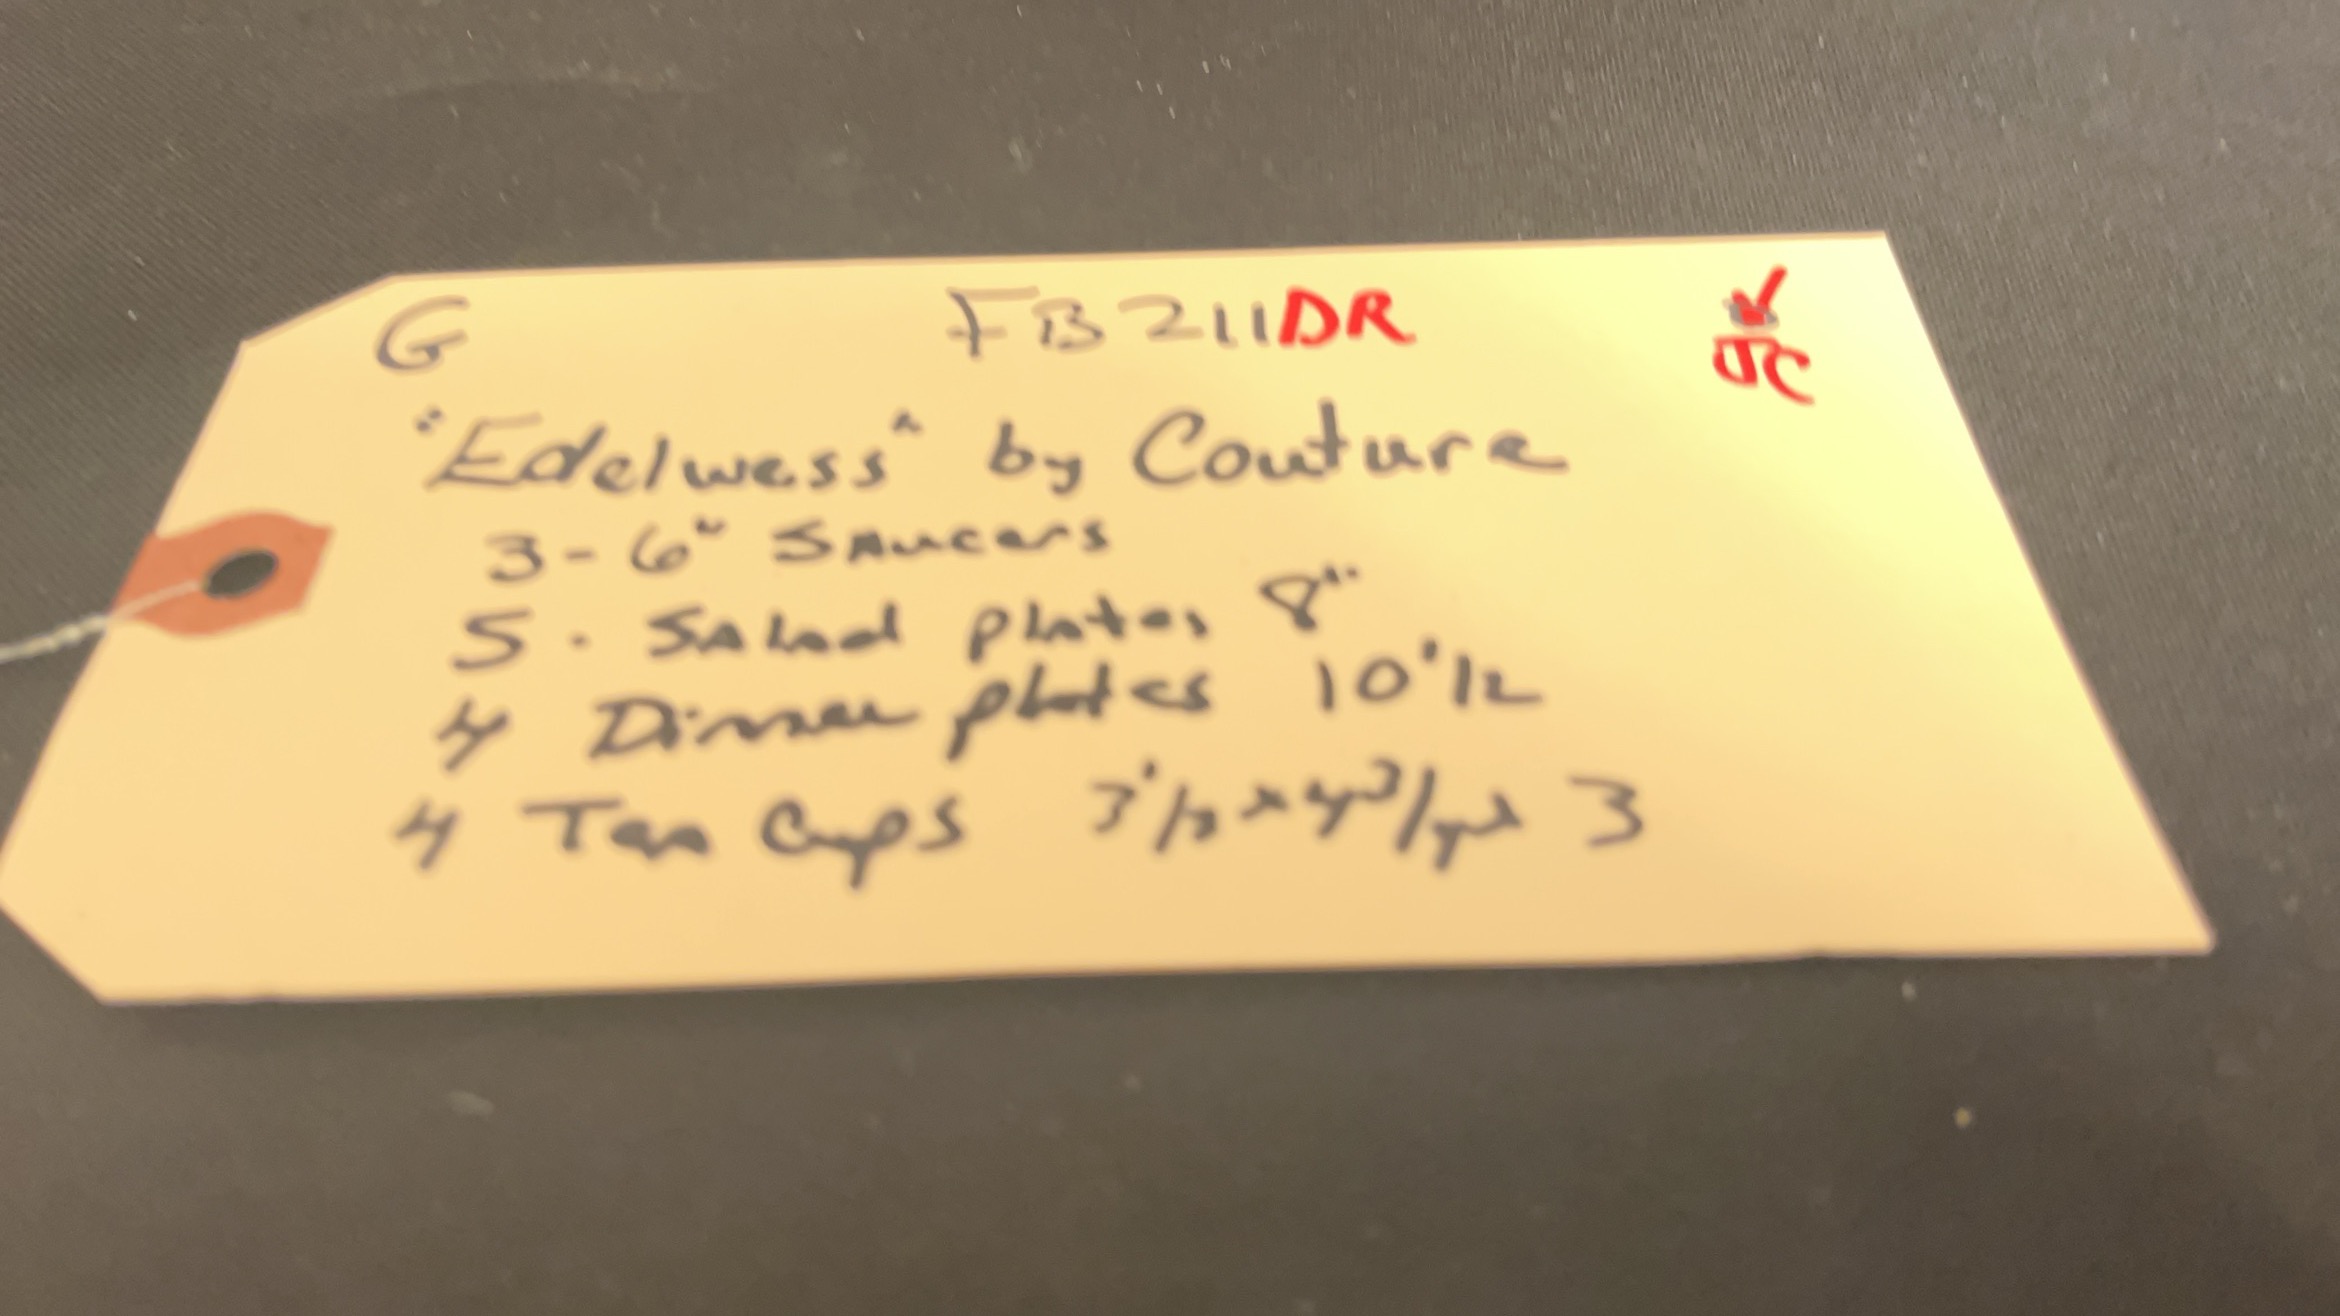 G FB211DR JC
"Edelwess" by Couture
3-6" Saucers
5 - Salad plates 8"
4 Dinner plates 10 1/2
4 Tea Cups 3 1/2 x 4 3/4 x 3